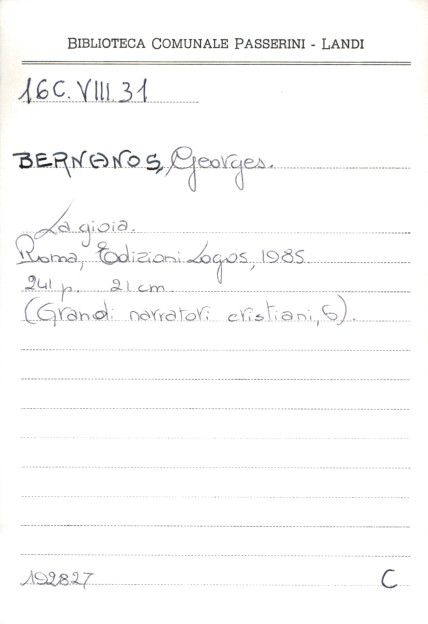 BIBLIOTECA COMUNALE PASSERINI - LANDI
16C.VIII.31
BERNANOS, Georges.
La gioia.
Roma, Edizioni Logos, 1985
241 p. 21 cm.
(Grandi narratori cristiani, 6).
192827 C